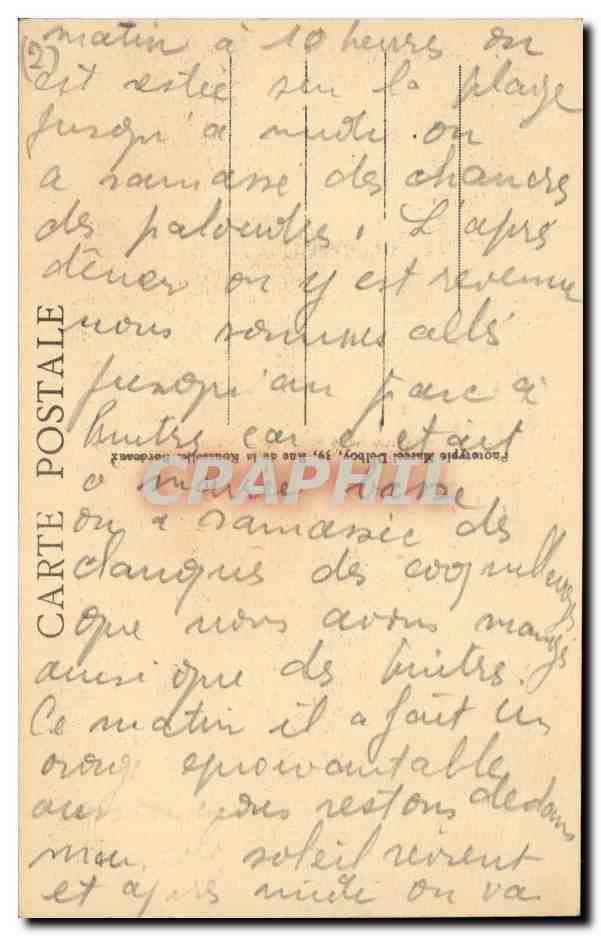 (2)
matin à 10 heures on
est restée sur la plage
jusqu'à midi. on
a ramassé des chancres
des palourdes. L'après
dêner on y est revenue
nous sommes allé
jusqu'au parc à
huitres car c'etait
a marée basse
on a ramassée des
clanques des coquillages
que nous avons mangé
ainsi que des huitres.
Ce matin il a fait un
orage epouvantable
nous restons dedans
soleil revient
et apres midi on va
CARTE POSTALE
Phototypie Marcel Delboy, 39, Rue de la Rousselle, Bordeaux
CPAPHIL